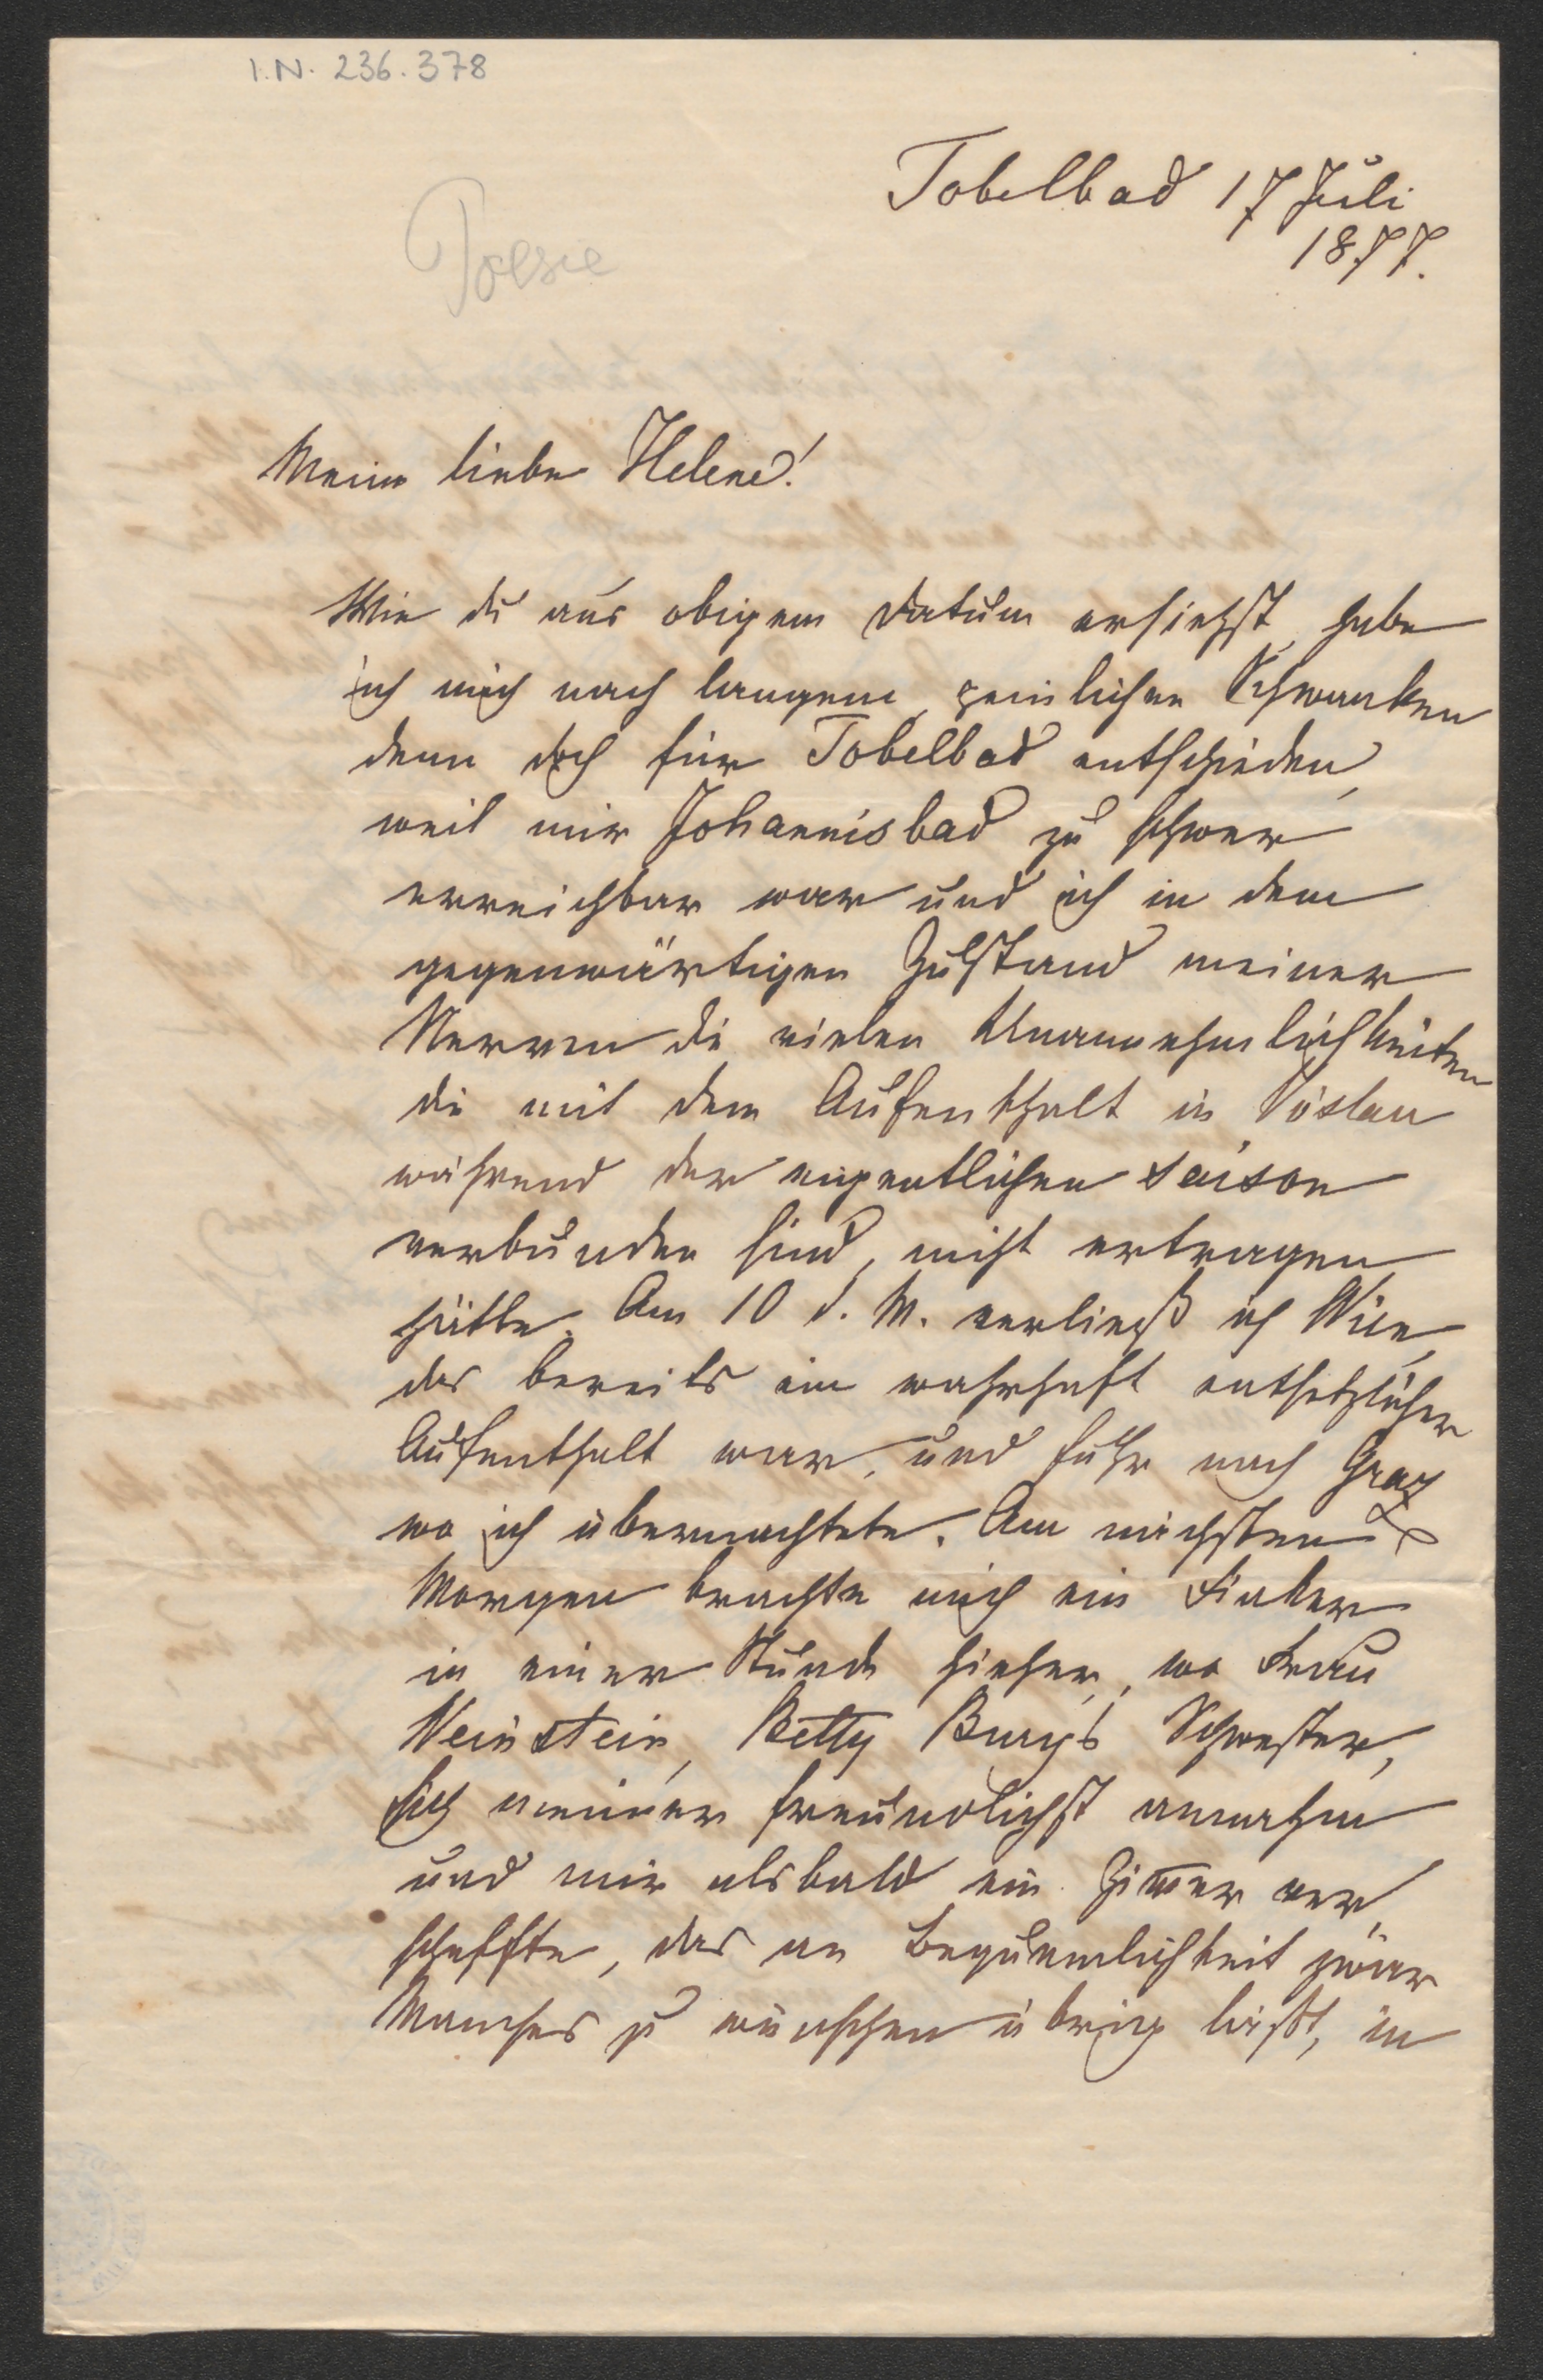 I.N. 236.378
Tobelbad 17 Juli
1877.
Poesie
Meine liebe Helene!
Wie du aus obigem Datum ersiehst, habe
ich mich nach langem, peinlichen Schwanken
denn doch für Tobelbad entschieden,
weil mir Johannisbad zu schwer
erreichbar war und ich in dem
gegenwärtigen Zustand meiner
Nerven die vielen Unannehmlichkeiten
die mit dem Aufenthalt in Vöslau
während der eigentlichen Saison
verbunden sind, nicht ertragen
hätte. Am 10 d. M. verließ ich Wien,
das bereits ein wahrhaft entsetzlicher
Aufenthalt war, und fuhr nach Graz
wo ich übernachtete. Am nächsten
Morgen brachte mich ein Fiaker
in einer Stunde hieher, wo Frau
Weinstein, Betty Burg's Schwester,
sich meiner freundlichst annahm
und mir alsbald ein Zimer ver
schaffte, das an Bequemlichkeit zwar
Manches zu wünschen übrig läßt, in